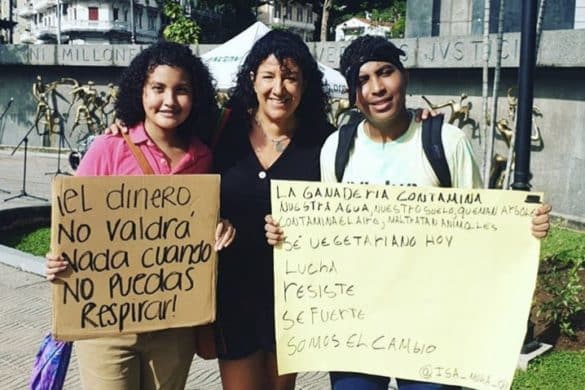 NI MILLONE
JUSTICI
¡EL DINERO
NO VALDRÁ
NADA CUANDO
NO PUEDAS
RESPIRAR!
LA GANADERIA CONTAMINA
NUESTRA AGUA, NUESTRO SUELO, QUEMAN ARBOLES
CONTAMINA EL AIRE, MALTRATAN ANIMALES
SÉ VEGETARIANO HOY
LUCHA
RESISTE
SE FUERTE
SOMOS EL CAMBIO